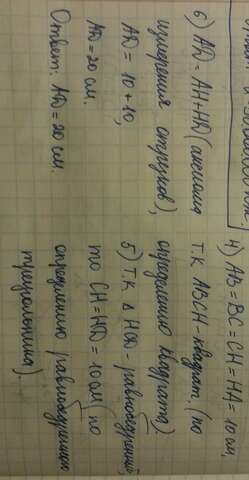 4) AB = BC = CH = HA = 10 см,
т.к ABCH - квадрат (по
определению квадрата)
5) Т.к Δ HCD - равнобедренный,
то CH = HD = 10 см (по
определению равнобедренного
треугольника).
6) AD = AH + HD (аксиома
измерения отрезков),
AD = 10 + 10,
AD = 20 см.
Ответ: AD = 20 см.